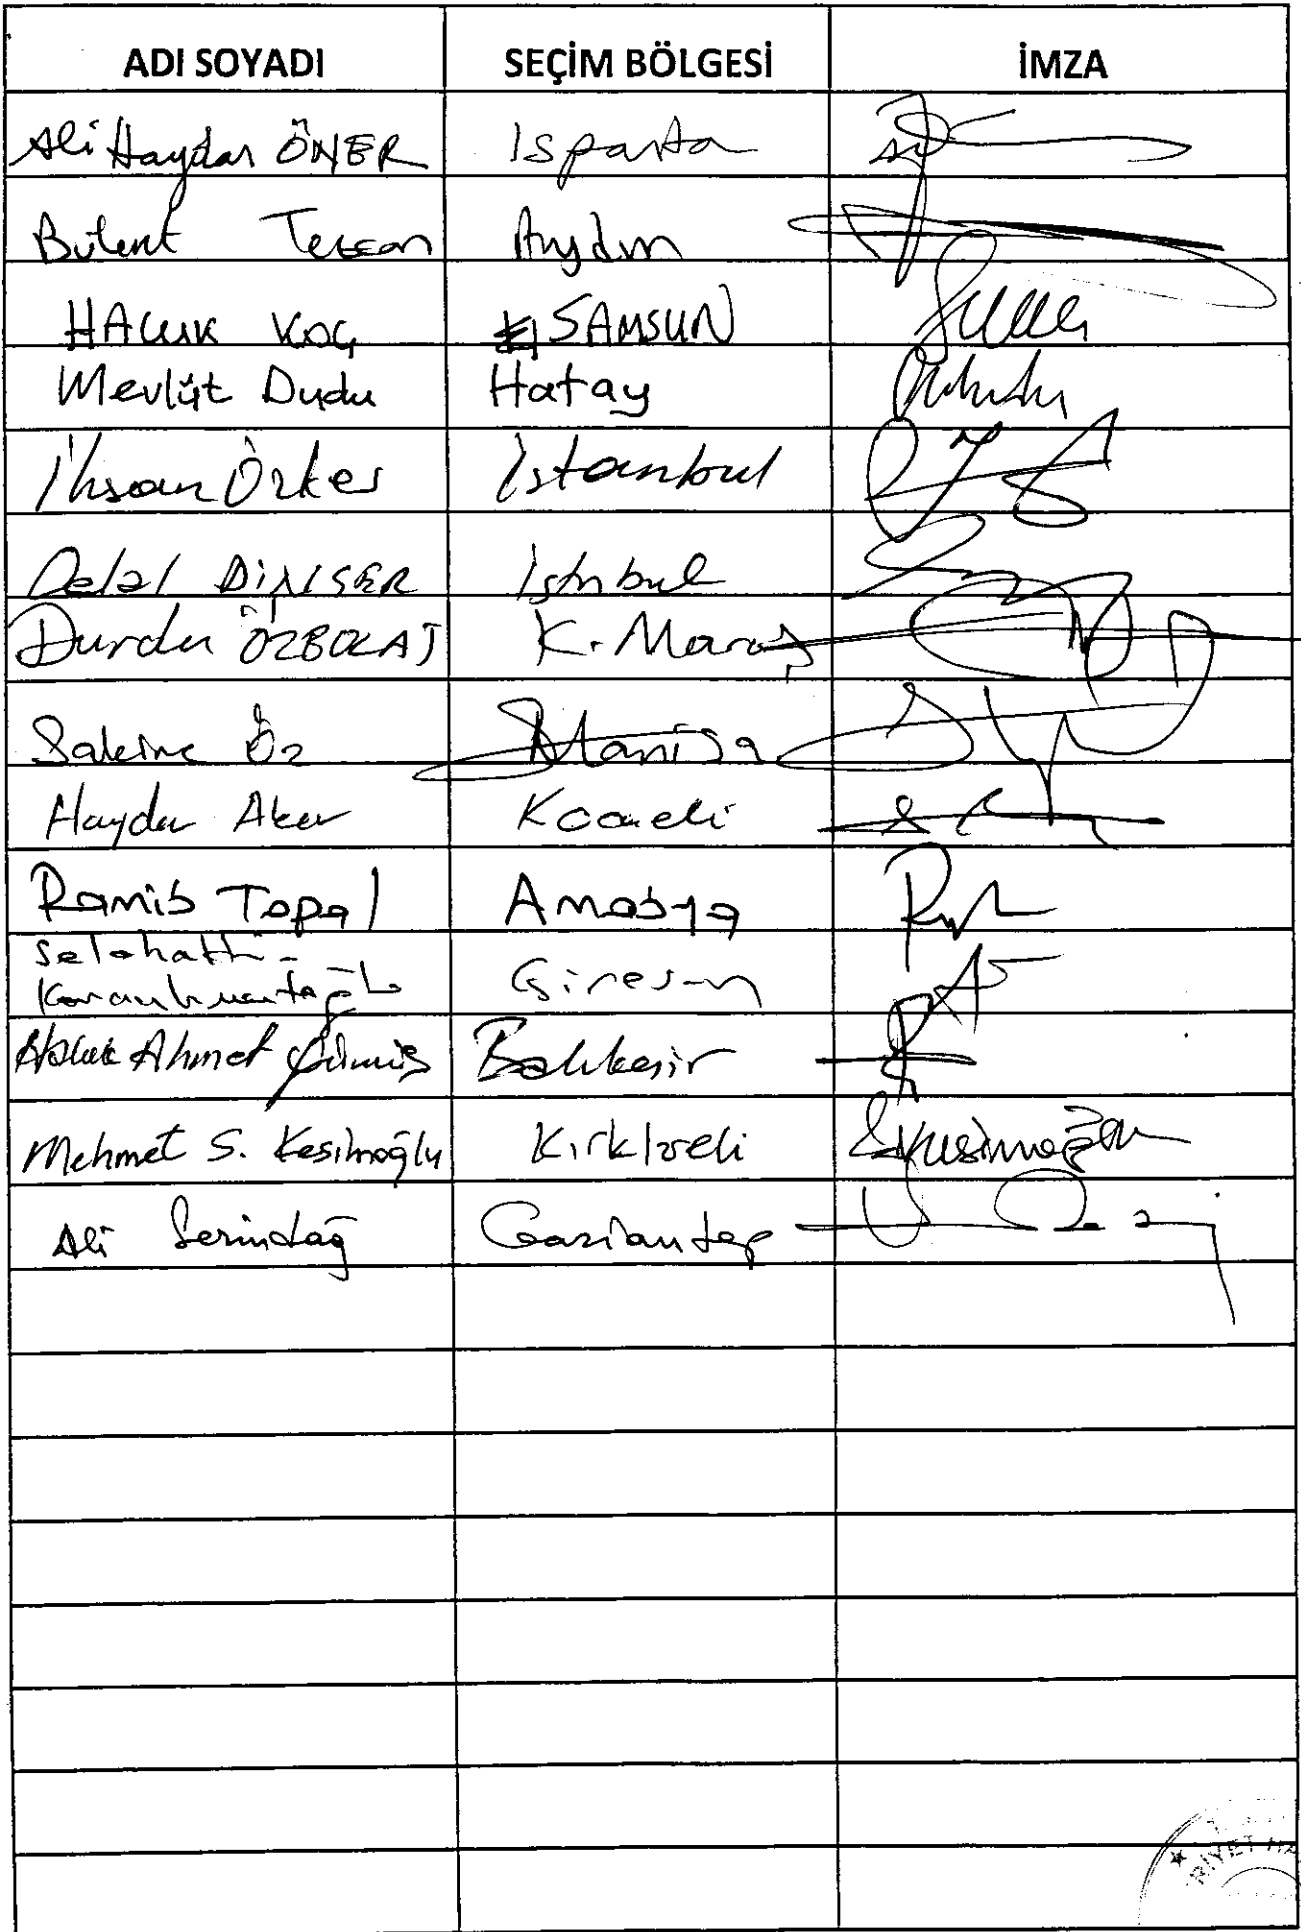 ADI SOYADI SEÇİM BÖLGESİ İMZA
Ali Haydar ÖNER Isparta
Bülent Tezcan Aydın
HALUK KOÇ SAMSUN
Mevlüt Dudu Hatay
İhsan Özkes İstanbul
Celal DİNÇER İstnbul
Durdu ÖZBOLAT K. Maraş
Sakine Öz Manisa
Haydar Akar Kocaeli
Ramis Topal Amasya
Selahattin
Karaahmetoğlu Giresun
Haluk Ahmet Gümüş Balıkesir
Mehmet S. Kesimoğlu Kırklareli Kesimoğlu
Ali Serindağ Gaziantep
RİYET HA